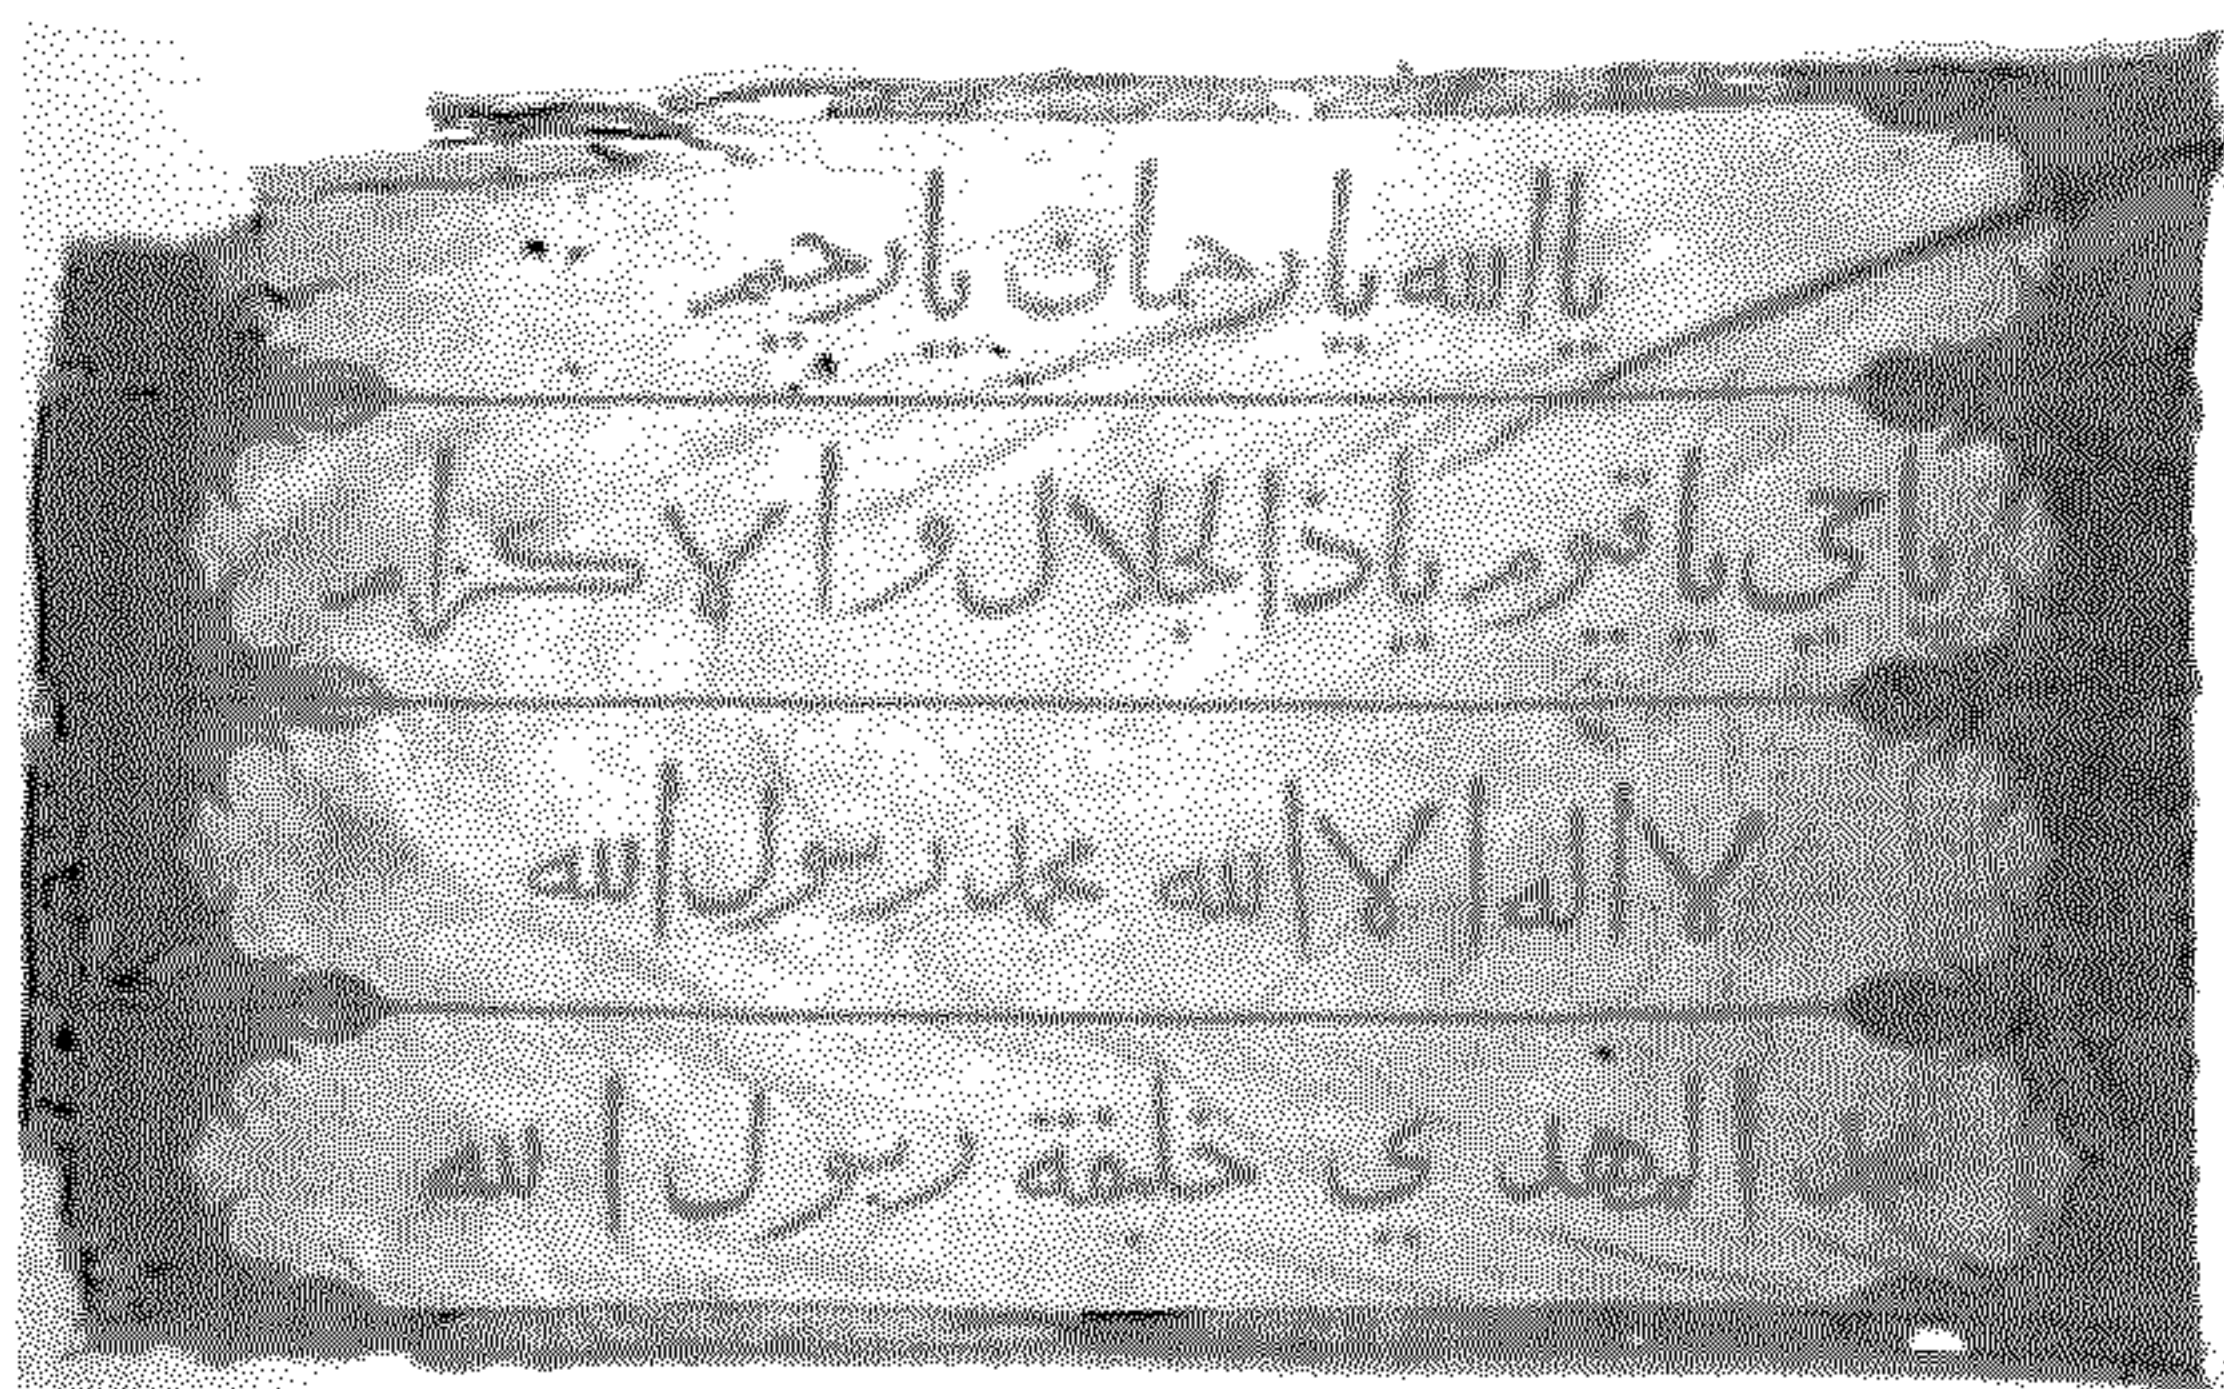 يا الله يا رحمان يا رحيم
يا حي يا قيوم يا ذالجلال والاكرام
لا اله الا الله محمد رسول الله
محمد المهدي خليفة رسول الله